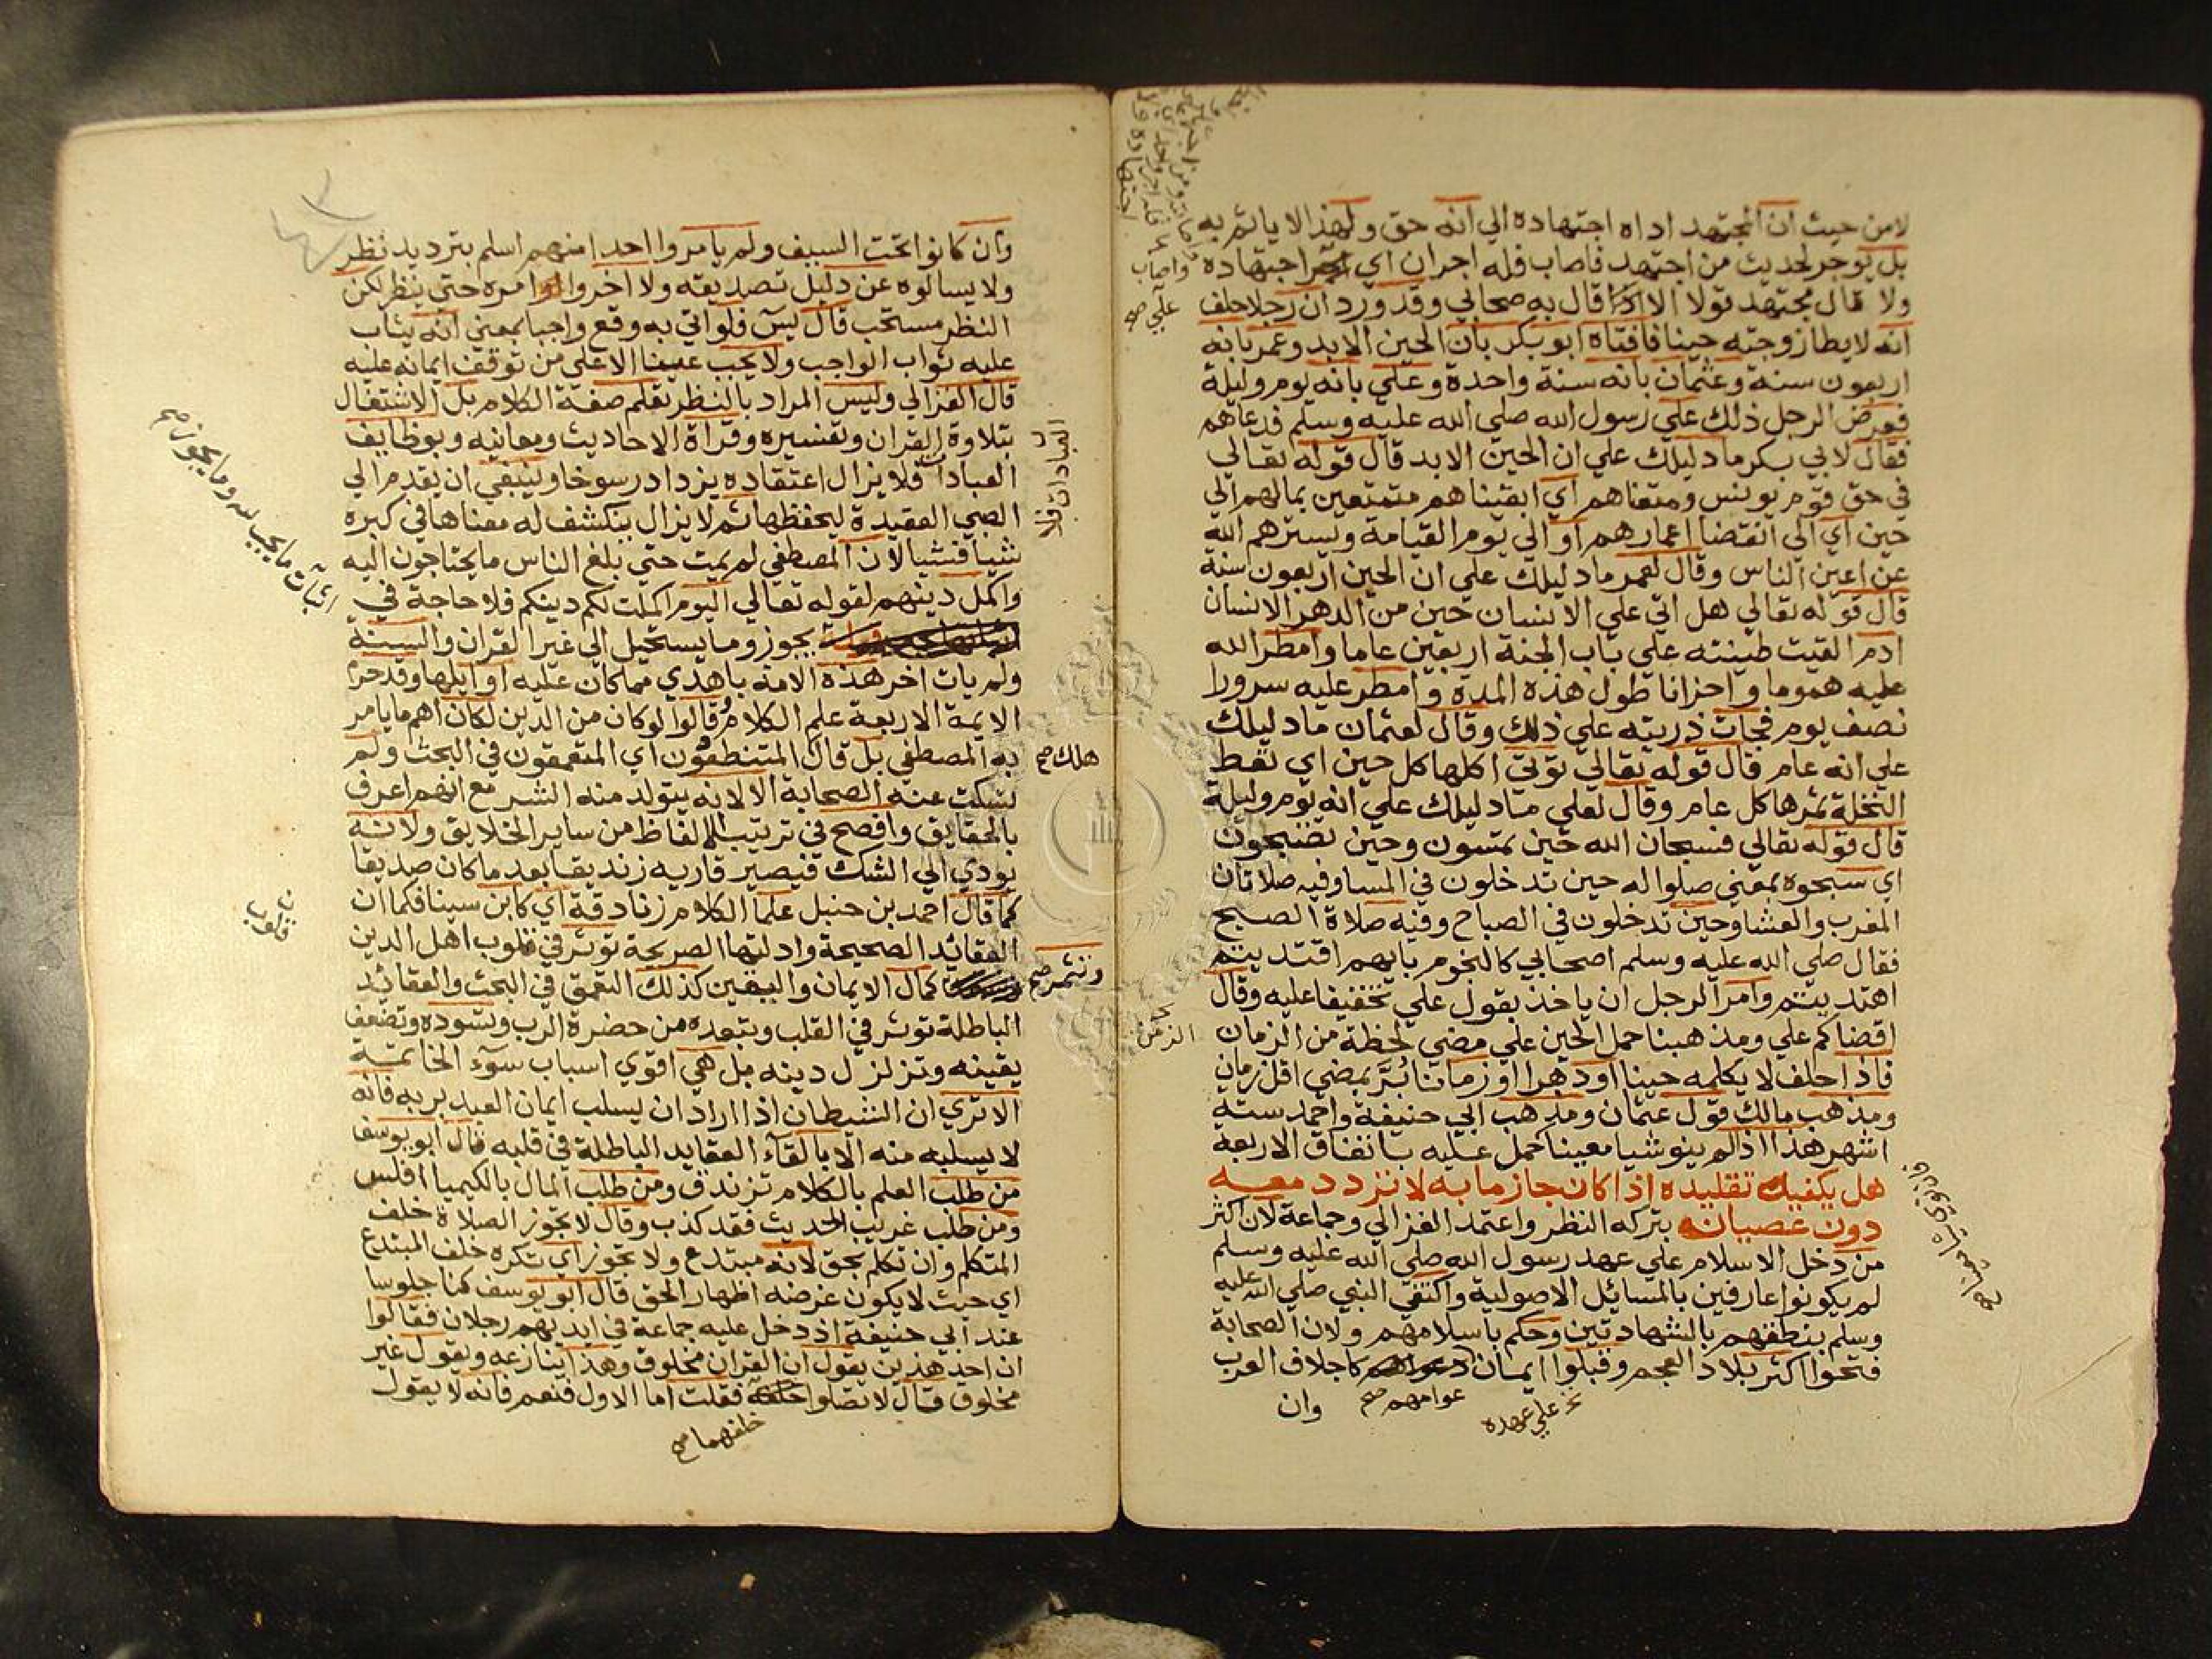 لامن حيث ان المجتهد اداه اجتهاده الي انه حق ولهذا لا ياثم به
بل يوجر لحديث من اجتهد فاصاب فله اجران اي اجتهاده
ولا قال مجتهد قولا الا قال به صحابي وقد ورد ان رجلا حلف
انه لا يطا زوجته حينا فافتاه ابو بكر بان الحين الابد وعمر بانه
اربعون سنة وعثمان بانه سنة واحدة وعلي بانه يوم وليلة
فعرض الرجل ذلك علي رسول الله صلي الله عليه وسلم فدعاهم
فقال لابي بكر ما دليلك علي ان الحين الابد قال قوله تعالي
في حق قوم يونس ومتعناهم اي ابقيناهم متمتعين بمالهم الي
حين اي الي انقضا اعمارهم او الي يوم القيامة ويسترهم الله
عن اعين الناس وقال لعمر ما دليلك علي ان الحين اربعون سنة
قال قوله تعالي هل اتي علي الانسان حين من الدهر الانسان
ادم القيت طينته علي باب الجنة اربعين عاما وامطر الله
عليه هموما واحزانا طول هذه المدة وامطر عليه سرورا
نصف يوم فجات ذريته علي ذلك وقال لعثمان ما دليلك
علي انه عام قال قوله تعالي توتي اكلها كل حين اي تعط
النخلة ثمرها كل عام وقال لعلي ما دليلك علي انه يوم وليلة
قال قوله تعالي فسبحان الله حين تمسون وحين تصبحون
اي سبحوه بمعني صلوا له حين تدخلون في المسا وفيه صلاتان
المغرب والعشا وحين تدخلون في الصباح وفيه صلاة الصبح
فقال صلي الله عليه وسلم اصحابي كالنجوم بايهم اقتديتم
اهتديتم وامر الرجل ان ياخذ بقول علي تخفيفا عليه وقال
اقضاكم علي ومذهبنا حمل الحين علي مضي لحظة من الزمان
الزمن
فاذا حلف لا يكلمه حينا او دهرا او زمانا بُرَّ بمضي اقل زمان
ومذهب مالك قول عثمان ومذهب ابي حنيفة واحمد ستة
اشهر هذا اذا لم ينو شيا معينا حمل عليه باتفاق الاربعة
هل يكفيك تقليده اذا كان جازما به لا تردد معه
دون عصيانه بتركه النظر واعتمد الغزالي وجماعة لان اكثر
من دخل الاسلام علي عهد رسول الله صلي الله عليه وسلم
لم يكونوا عارفين بالمسائل الاصولية واكتفي النبي صلي الله عليه
وسلم بنطقهم بالشهادتين وحكم باسلامهم ولان الصحابة
فتحوا اكثر بلاد العجم وقبلوا ايمان كاجلاف العرب
عوامهم صح
علي عهده
وان
وان كانوا تحت السيف ولم يامروا احدا منهم اسلم بترديد نظر
ولا يسالوه عن دليل تصديقه ولا اخروا امره حتي ينظر لكن
النظر مستحب قال يس فلو اتي به وقع واجبا بمعني انه يثاب
عليه ثواب الواجب ولا يجب عينا الا علي من توقف ايمانه عليه
قال الغزالي وليس المراد بالنظر تعلم صفة الكلام بل الاشتغال
بتلاوة القران وتفسيره وقراة الاحاديث ومعانيه وبوظايف
العبادات فلا يزال اعتقاده يزداد رسوخا وينبغي ان يقدم الي
العبادات فلا
الصبي العقيدة ليحفظها ثم لا يزال ينكشف له معناها في كبره
شيا فشيا لان المصطفي لم يمت حتي بلغ الناس ما يحتاجون اليه
واكمل دينهم لقوله تعالي اليوم اكملت لكم دينكم فلا حاجة في
اثبات ما يجب لله وما يجوز صح
يجوز وما يستحيل الي غير القران والسنة
ولم يات اخر هذه الامة باهدي مما كان عليه اوايلها وقد حرم
الايمة الاربعة علم الكلام وقالوا لو كان من الدين لكان اهم ما يامر
به المصطفي بل قال المتنطعون اي المتعمقون في البحث ولم
هلك صح
تسكت عنه الصحابة الا لانه يتولد منه الشر مع انهم اعرف
بالحقايق وافصح في ترتيب الالفاظ من ساير الخلايق ولانه
يودي الي الشك فيصير قاريه زنديقا بعد ما كان صديقا
كما قال احمد بن حنبل علما الكلام زنادقة اي كابن سينا فكما ان
العقائد الصحيحة وادلتها الصريحة توثر في قلوب اهل الدين
قلوب
وتثمر صح
كمال الايمان واليقين كذلك التعمق في البحث والعقائد
الباطلة توثر في القلب وتبعده من حضرة الرب وتسوده وتضعف
يقينه وتزلزل دينه بل هي اقوي اسباب سوء الخاتمة
الا تري ان الشيطان اذا اراد ان يسلب ايمان العبد بربه فانه
لا يسلبه منه الا بالقاء العقايد الباطلة في قلبه قال ابو يوسف
من طلب العلم بالكلام تزندق ومن طلب المال بالكيميا افلس
ومن طلب غريب الحديث فقد كذب وقال لا تجوز الصلاة خلف
المتكلم وان تكلم بحق لانه مبتدع ولا تجوز اي تكره خلف المبتدع
اي حيث لا يكون غرضه اظهار الحق قال ابو يوسف كنا جلوسا
عند ابي حنيفة اذ دخل عليه جماعة في ايديهم رجلان فقالوا
ان احد هذين يقول ان القران مخلوق وهذا ينازعه ويقول غير
مخلوق قال لا تصلوا فقلت اما الاول فنعم فانه لا يقول
خلفهما صح